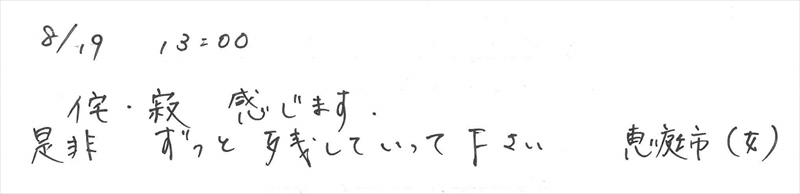 8/19 13:00
侘・寂 感じます.
是非 ずっと 残していって下さい 恵庭市(女)